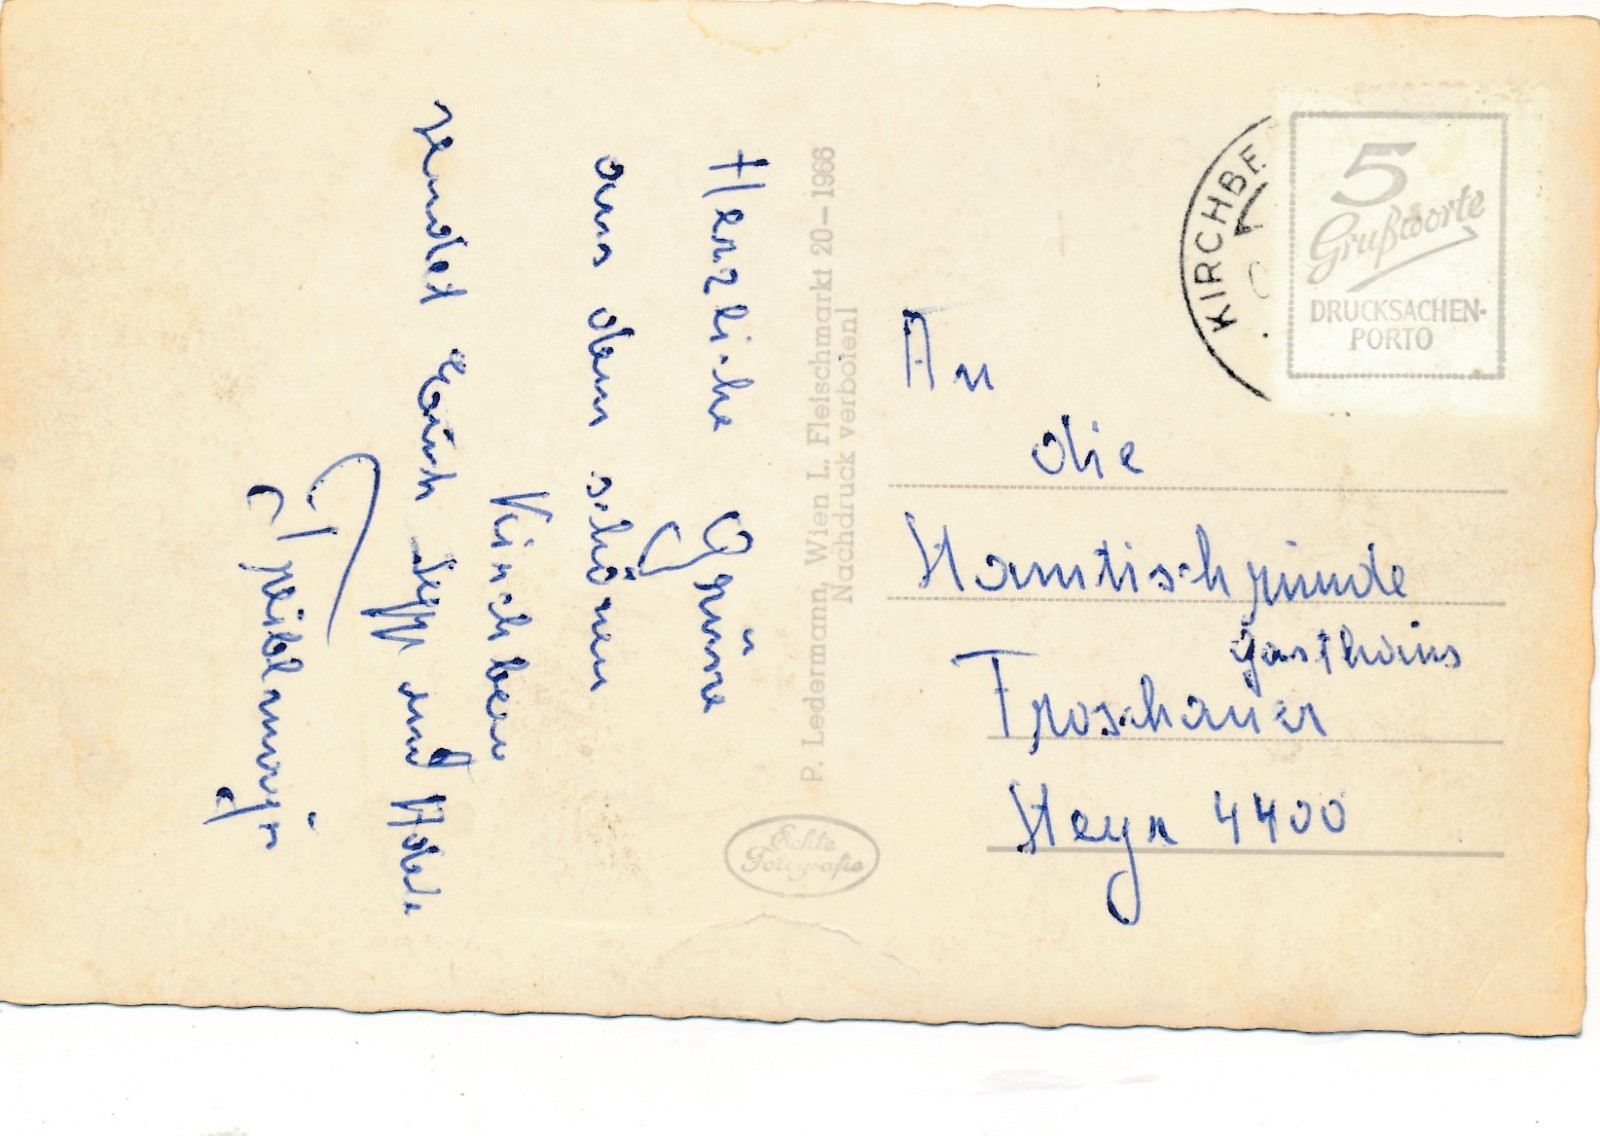 Herzliche Grüsse
aus dem schönen
Kirchberg
sendet Euch Sepp und Adele
P. Ledermann, Wien I., Fleischmarkt 20–1966
Nachdruck verboten!
Echte
Fotografie
KIRCHBE
5
Grußworte
DRUCKSACHEN-
PORTO
An
die
Stamtischrunde
Gasthaus
Froschauer
Steyr 4400